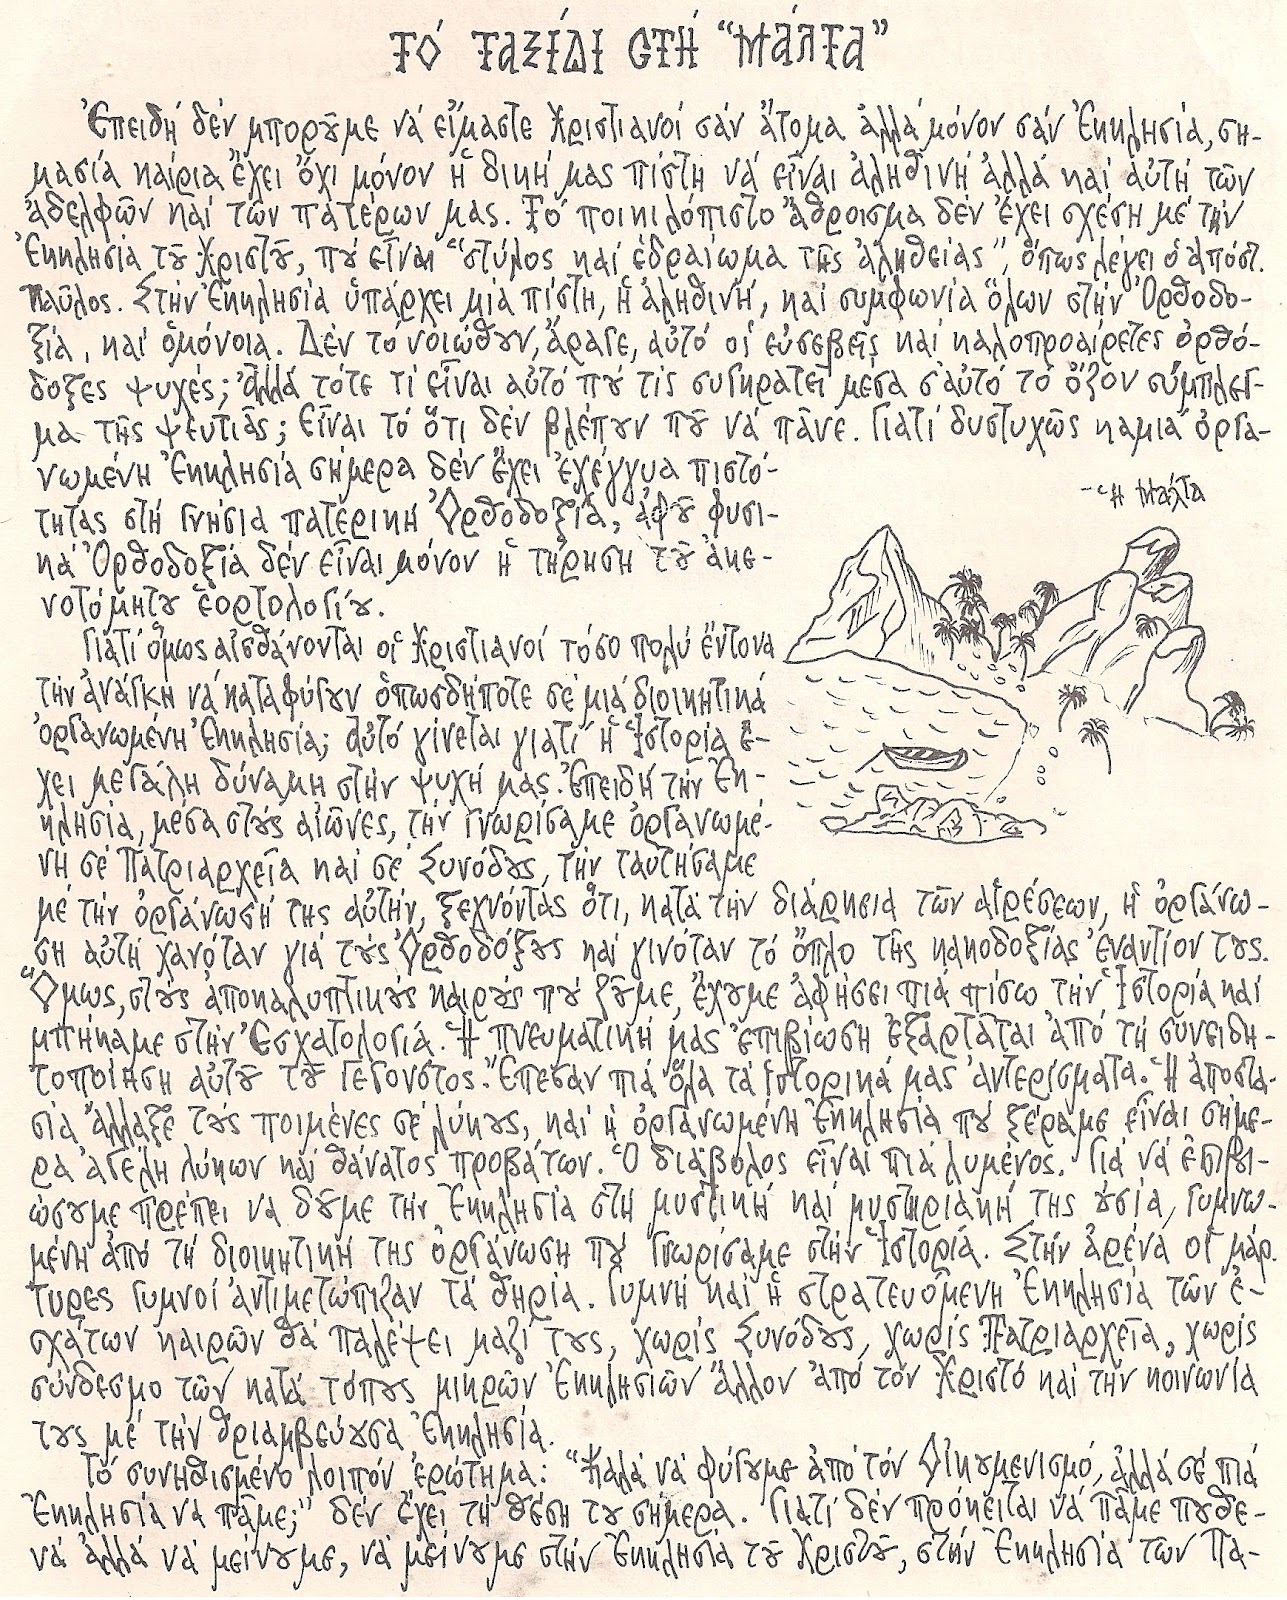 Τό Ταξίδι στή "Μάλτα"
Ἐπειδή δέν μποροῦμε νά εἴμαστε Χριστιανοί σάν ἄτομα ἀλλά μόνον σάν Ἐκκλησία, ση-
μασία καίρια ἔχει ὄχι μόνον ἡ δική μας πίστη νά εἶναι ἀληθινή ἀλλά καί αὐτή τῶν
ἀδελφῶν καί τῶν πατέρων μας. Τό ποικιλόπιστο ἄθροισμα δέν ἔχει σχέση μέ τήν
Ἐκκλησία τοῦ Χριστοῦ, πού εἶναι "στύλος καί ἑδραίωμα τῆς ἀληθείας", ὅπως λέγει ὁ ἀπόστ.
Παῦλος. Στήν Ἐκκλησία ὑπάρχει μία πίστη, ἡ ἀληθινή, καί συμφωνία ὅλων στήν Ὀρθοδο-
ξία, καί ὁμόνοια. Δέν τό νοιώθουν, ἄραγε, αὐτό οἱ εὐσεβεῖς καί καλοπροαίρετες ὀρθό-
δοξες ψυχές; Ἀλλά τότε τί εἶναι αὐτό πού τίς συγκρατεῖ μέσα σ' αὐτό τό ὄζον σύμπλεγ-
μα τῆς ψευτιᾶς; Εἶναι τό ὅτι δέν βλέπουν ποῦ νά πᾶνε. Γιατί δυστυχῶς καμιά ὀργα-
νωμένη Ἐκκλησία σήμερα δέν ἔχει ἐχέγγυα πιστό-
τητας στή γνήσια πατερική Ὀρθοδοξία, ἀφοῦ φυσι-
κά Ὀρθοδοξία δέν εἶναι μόνον ἡ τήρηση τοῦ ἀκε-
νοτόμητου ἑορτολογίου.
-Ἡ Μάλτα
Γιατί ὅμως αἰσθάνονται οἱ Χριστιανοί τόσο πολύ ἔντονα
τήν ἀνάγκη νά καταφύγουν ὁπωσδήποτε σέ μιά διοικητικά
ὀργανωμένη Ἐκκλησία; Αὐτό γίνεται γιατί ἡ Ἱστορία ἔ-
χει μεγάλη δύναμη στήν ψυχή μας. Ἐπειδή τήν Ἐκ-
κλησία, μέσα στούς αἰῶνες, τήν γνωρίσαμε ὀργανωμέ-
νη σέ Πατριαρχεῖα καί σέ Συνόδους, τήν ταυτήσαμε
μέ τήν ὀργάνωσή της αὐτήν, ξεχνόντας ὅτι, κατά τήν διάρκεια τῶν αἱρέσεων, ἡ ὀργάνω-
ση αὐτή χανόταν γιά τούς Ὀρθοδόξους καί γινόταν τό ὅπλο τῆς κακοδοξίας ἐναντίον τους.
Ὅμως, στούς ἀποκαλυπτικούς καιρούς πού ζοῦμε, ἔχουμε ἀφήσει πιά πίσω τήν Ἱστορία καί
μπήκαμε στήν Ἐσχατολογία. Ἡ πνευματική μας ἐπιβίωση ἐξαρτᾶται ἀπό τή συνειδη-
τοποίηση αὐτοῦ τοῦ γεγονότος. Ἔπεσαν πιά ὅλα τά ἱστορικά μας ἀντερίσματα. Ἡ ἀποστα-
σία ἄλλαξε τούς ποιμένες σέ λύκους, καί ἡ ὀργανωμένη Ἐκκλησία πού ξέραμε εἶναι σήμε-
ρα ἀγέλη λύκων καί θάνατος προβάτων. Ὁ διάβολος εἶναι πιά λυμένος. Γιά νά ἐπιβι-
ώσουμε πρέπει νά δοῦμε τήν Ἐκκλησία στή μυστική καί μυστηριακή της οὐσία, γυμνω-
μένη ἀπό τή διοικητική της ὀργάνωση πού γνωρίσαμε στήν Ἱστορία. Στήν ἀρένα οἱ μάρ-
τυρες γυμνοί ἀντιμετώπιζαν τά θηρία. Γυμνή καί ἡ στρατευομένη Ἐκκλησία τῶν ἐ-
σχάτων καιρῶν θά παλέψει μαζί τους, χωρίς Συνόδους, χωρίς Πατριαρχεῖα, χωρίς
σύνδεσμο τῶν κατά τόπους μικρῶν Ἐκκλησιῶν ἄλλον ἀπό τόν Χριστό καί τήν κοινωνία
τους μέ τήν θριαμβεύουσα Ἐκκλησία.
Τό συνηθισμένο λοιπόν ἐρώτημα: "Καλά νά φύγουμε ἀπό τόν Οἰκουμενισμό, ἀλλά σέ πιά
Ἐκκλησία νά πᾶμε;" δέν ἔχει τή θέση του σήμερα. Γιατί δέν πρόκειται νά πᾶμε πουθε-
νά ἀλλά νά μείνουμε, νά μείνουμε στήν Ἐκκλησία τοῦ Χριστοῦ, στήν Ἐκκλησία τῶν Πα-